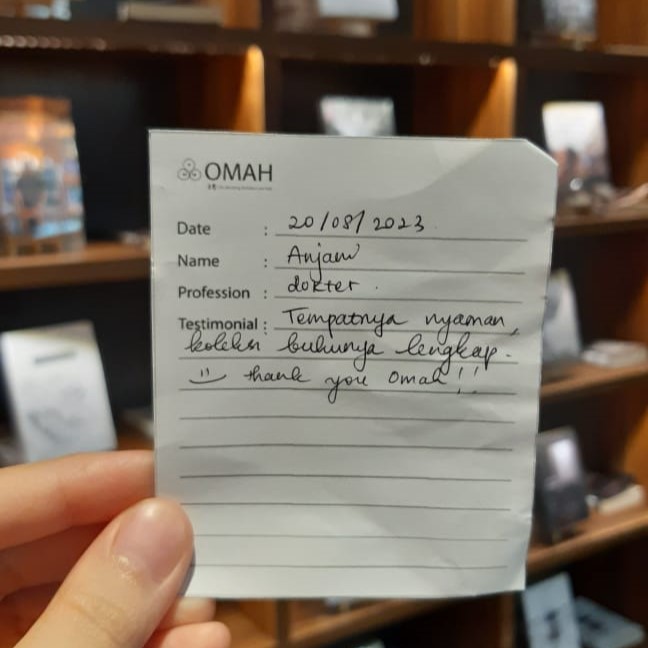 OMAH
Date : 20/08/2023
Name : Anjani
Profession : dokter.
Testimonial : Tempatnya nyaman,
koleksi bukunya lengkap.
thank you Omah!!